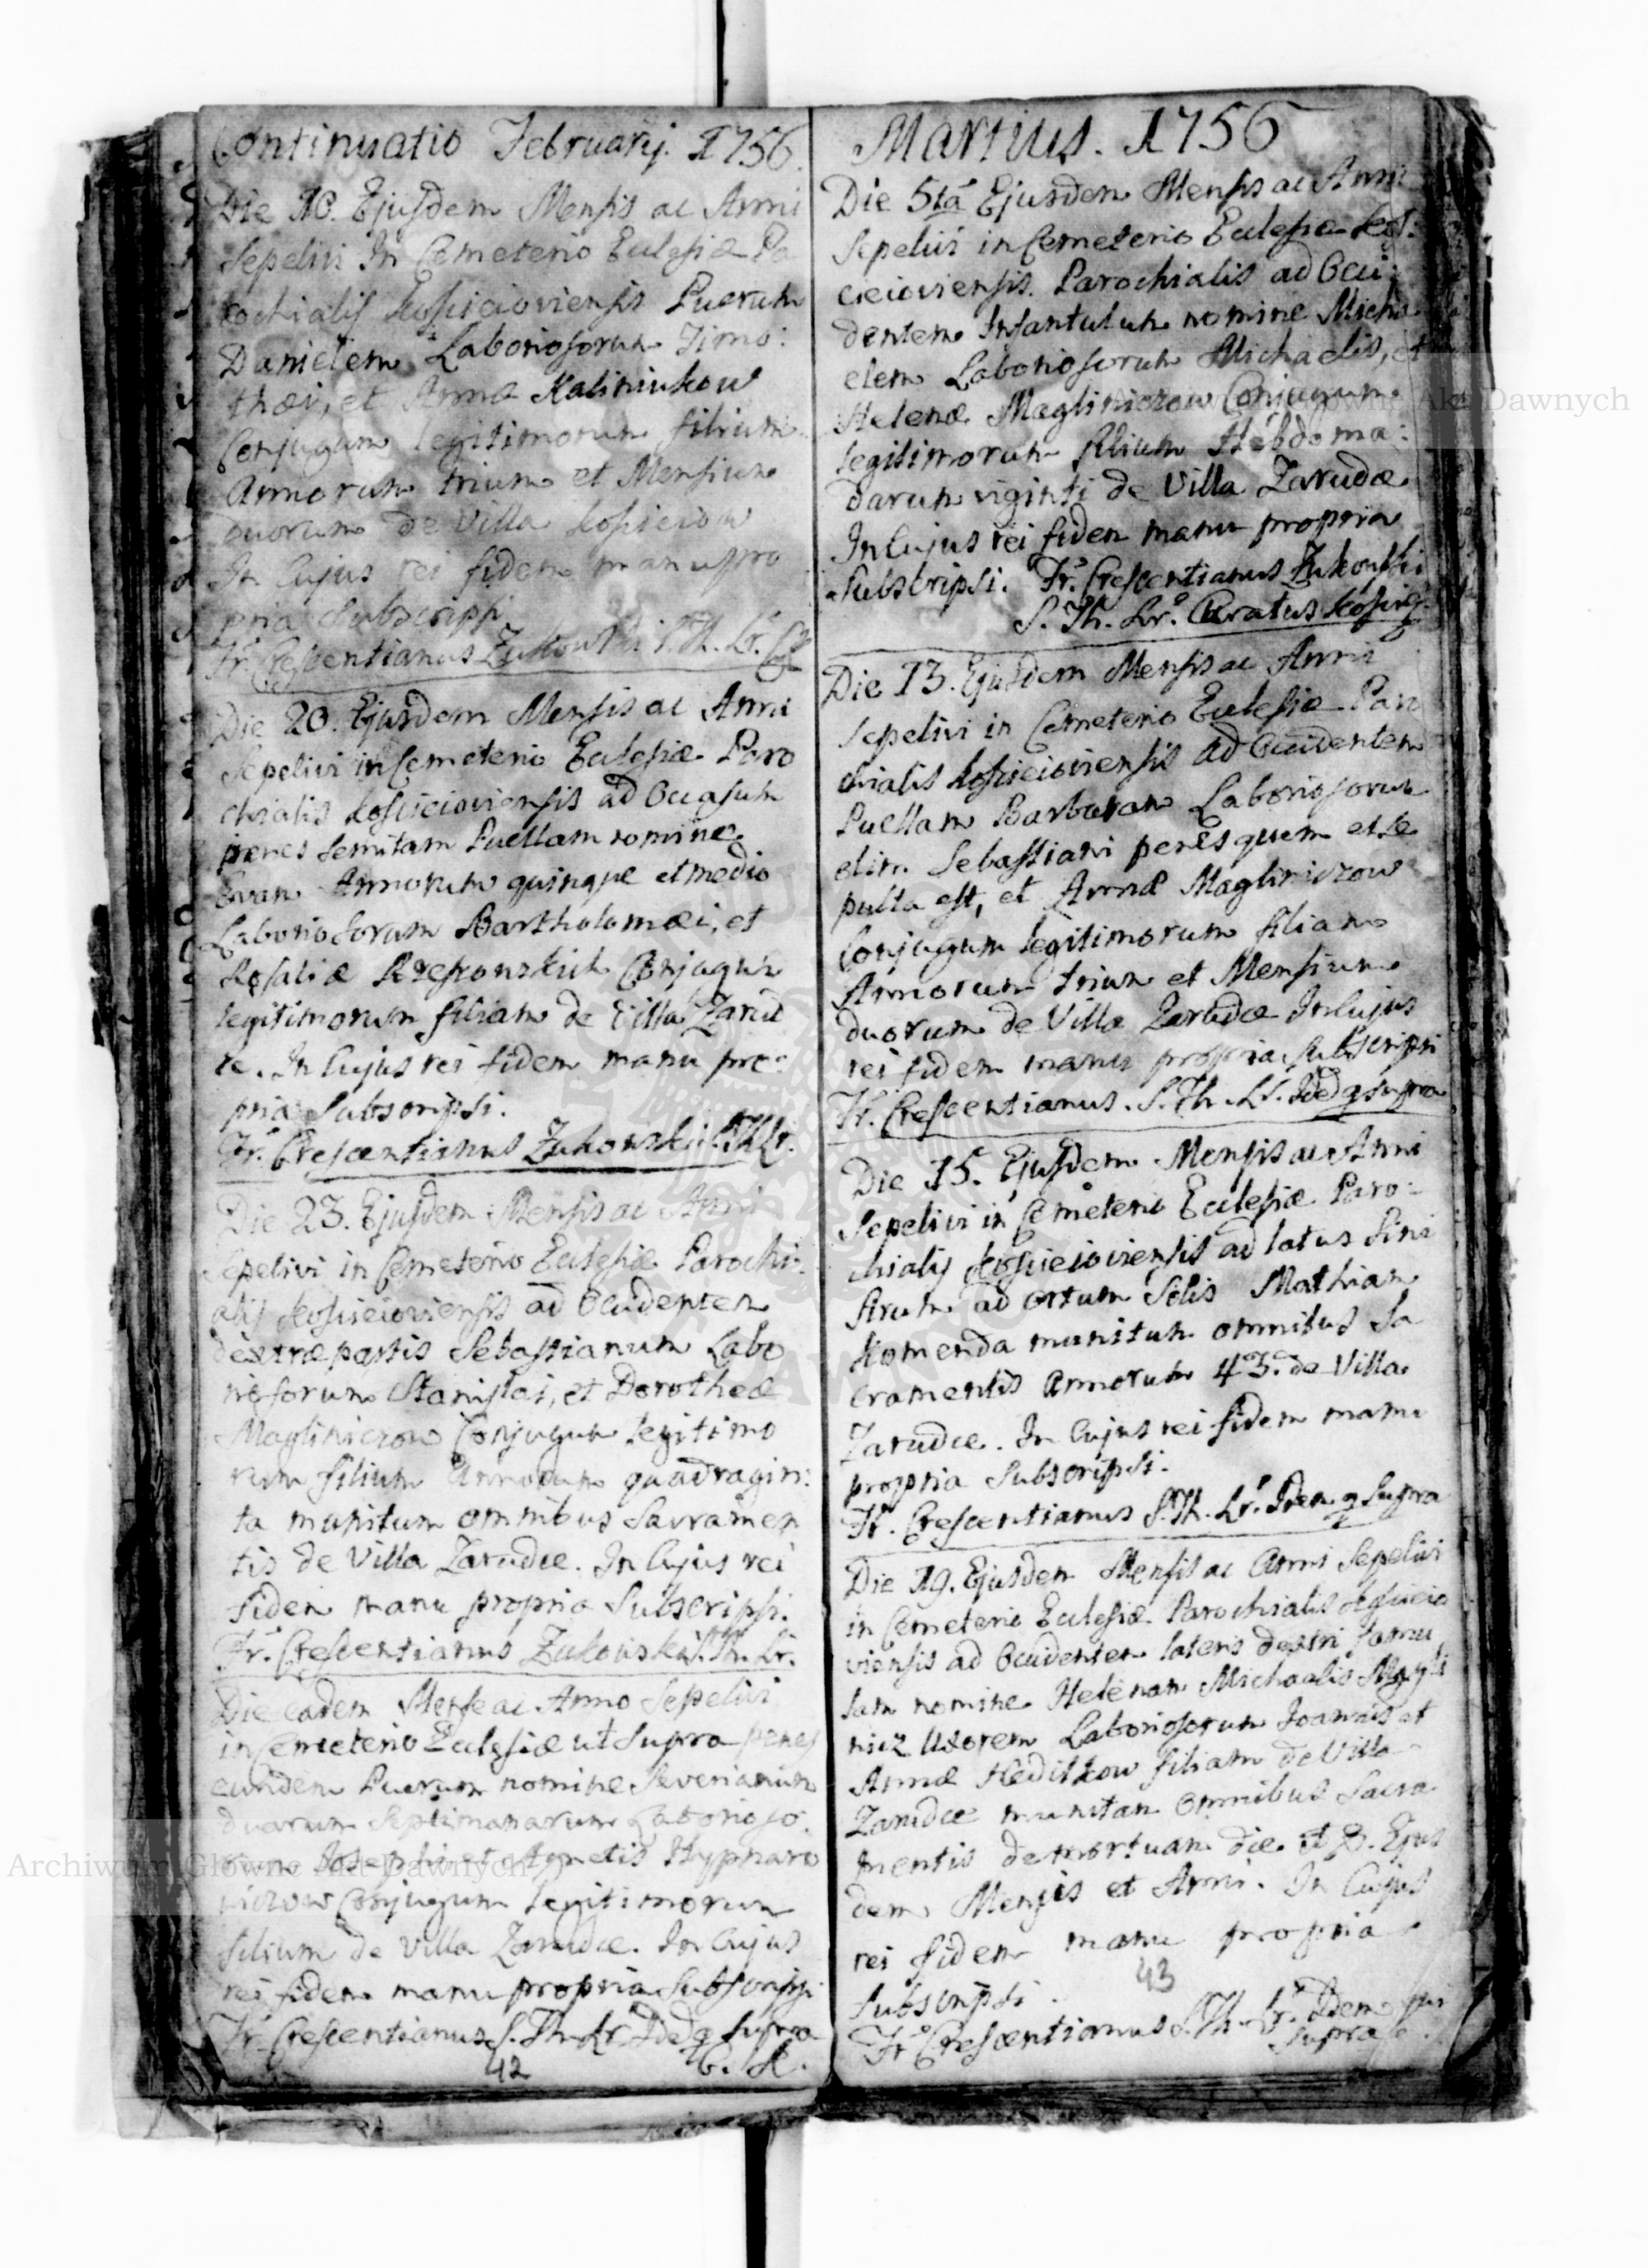 Continuatio Februarij. 1756.
Die 10. Ejusdem Mensis ac Anni
Sepelivi In Cemeterio Eclesiæ Pa
rochialis Kosicioviensis Puerum
Danielem Laboriosorum Timo:
thæi, et Annæ Kaliniukow
Conjugum legitimorum filium
Annorum trium et Mensium
duorum de Villa Kosiciow
In Cujus rei fidem manu pro
pria Subscripsi
Fr. Crescentianus Zukowski S. Th. Lr.
Die 20. Ejusdem Mensis ac Anni
Sepelivi in Cemeterio Eclesiæ Paro
chialis Kosicieioviensis ad Occasum
penes Semitam Puellam nomine
Evam Annorum quinque et medio
Laboriosorum Bartholomæi, et
Rosaliæ Conjugum
legitimorum filiam de Villa Zarud
ce. In Cujus rei fidem manu pro:
pria Subscripsi.
Fr. Crescentianus Zukowski S. Th Lr.
Die 23. Ejusdem Mensis ac Anni
Sepelivi in Cemeterio Eclesiæ Parochi:
alis Kosicieioviensis ad Occidentem
dextræ partis Sebastianum Labo
riosorum Stanislai, et Dorotheæ
Magliniczow Conjugum legitimo
rum filium Annorum quadragin:
ta munitum omnibus Sacramen
tis de Villa Zarudce. In Cujus rei
fidem manu propria Subscripsi.
Fr. Crescentianus Zukowski S. Th. Lr.
Die eadem Mense ac Anno Sepelivi
in Cemeterio Eclesiæ ut Supra penes
eundem Puerum nomine Severianum
duarum Septimanarum Laborioso:
rum Josephi et Agnetis Hypnaro
wiczow Conjugum legitimorum
filium de Villa Zarudce. In Cujus
rei fidem manu propria Subscripsi
Fr. Crescentianus S. Th. Lr. Idē q Supra
C. K.
42
Martius. 1756
Die 5tá Ejusdem Mensis ac Anni
Sepelivi in Cemeterio Eclesiæ Kos:
cieioviensis Parochialis ad Occi:
dentem Infantulum nomine Micha
elem Laboriosorum Michaelis, et
Helenæ Magliniczow Conjugum
legitimorum filium Hebdoma:
darum viginti de Villa Zarudce
In Cujus rei fidem manu propria
Subscripsi. Fr. Crescentianus Zukowski
S. Th. Lr. Curatus Kosicie
Die 13. Ejusdem Mensis ac Anni
Sepelivi in Cemeterio Eclesiæ Paro
chialis Kosicieioviensis ad Occidentem
Puellam Barbaram Laboriosorum
olim Sebastiani penes quem et se
pulta est, et Annæ Magliniczow
Conjugum legitimorum filiam
Annorum trium et Mensium
duorum de Villa Zarudce In Cujus
rei fidem manu propria Subscripsi
Fr. Crescentianus. S. Th. Lr. Idē q supra
Die 15. Ejusdem Mensis ac Anni
Sepelivi in Cemeterio Eclesiæ Paro:
chialis Kosicieioviensis ad latus Sini
strum ad ortum Solis Mathiam
Komenda munitum omnibus Sa
cramentis Annorum 43. de Villa
Zarudce. In Cujus rei fidem manu
propria Subscripsi.
Fr. Crescentianus S. Th. Lr. Idem q Supra
Die 19. Ejusdem Mensis ac Anni Sepelivi
in Cemeterio Eclesiæ Parochialis Kosicieio
viensis ad Occidentem lateris dextri Famu
lam nomine Helenam Michaelis Magli
nicz Uxorem Laboriosorum Joannis et
Annæ Hedilkow filiam de Villa
Zarudce munitam Omnibus Sacra
mentis demortuam die 18. Ejus
dem Mensis et Anni. In Cujus
rei fidem manu propria
Subscripsi.
Fr Crescentianus S. Th. Lr. Idem qui
supra
43
Archiwum Główne Akt Dawnych
Archiwum Główne Akt Dawnych